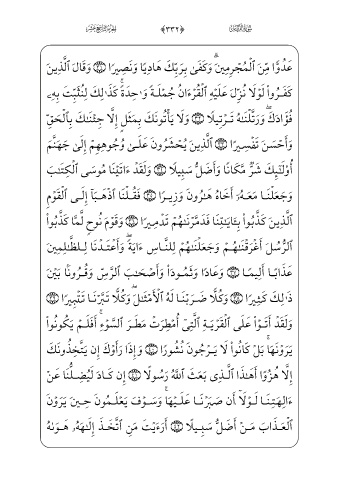 سُورَةُ الفُرْقَانِ ﴿٣٣٢﴾ الجزء التاسع عشر
عَدُوًّا مِّنَ ٱلْمُجْرِمِينَۗ وَكَفَىٰ بِرَبِّكَ هَادِيًا وَنَصِيرًا ۝ وَقَالَ ٱلَّذِينَ
كَفَرُواْ لَوْلَا نُزِّلَ عَلَيْهِ ٱلْقُرْءَانُ جُمْلَةً وَٰحِدَةًۚ كَذَٰلِكَ لِنُثَبِّتَ بِهِۦ
فُؤَادَكَۖ وَرَتَّلْنَٰهُ تَرْتِيلًا ۝ وَلَا يَأْتُونَكَ بِمَثَلٍ إِلَّا جِئْنَٰكَ بِٱلْحَقِّ
وَأَحْسَنَ تَفْسِيرًا ۝ ٱلَّذِينَ يُحْشَرُونَ عَلَىٰ وُجُوهِهِمْ إِلَىٰ جَهَنَّمَ
أُوْلَٰٓئِكَ شَرٌّ مَّكَانًا وَأَضَلُّ سَبِيلًا ۝ وَلَقَدْ ءَاتَيْنَا مُوسَى ٱلْكِتَٰبَ
وَجَعَلْنَا مَعَهُۥٓ أَخَاهُ هَٰرُونَ وَزِيرًا ۝ فَقُلْنَا ٱذْهَبَآ إِلَى ٱلْقَوْمِ
ٱلَّذِينَ كَذَّبُواْ بِـَٔايَٰتِنَا فَدَمَّرْنَٰهُمْ تَدْمِيرًا ۝ وَقَوْمَ نُوحٍ لَّمَّا كَذَّبُواْ
ٱلرُّسُلَ أَغْرَقْنَٰهُمْ وَجَعَلْنَٰهُمْ لِلنَّاسِ ءَايَةًۖ وَأَعْتَدْنَا لِلظَّٰلِمِينَ
عَذَابًا أَلِيمًا ۝ وَعَادًا وَثَمُودَاْ وَأَصْحَٰبَ ٱلرَّسِّ وَقُرُونًۢا بَيْنَ
ذَٰلِكَ كَثِيرًا ۝ وَكُلًّا ضَرَبْنَا لَهُ ٱلْأَمْثَٰلَۖ وَكُلًّا تَبَّرْنَا تَتْبِيرًا ۝
وَلَقَدْ أَتَوْاْ عَلَى ٱلْقَرْيَةِ ٱلَّتِىٓ أُمْطِرَتْ مَطَرَ ٱلسَّوْءِۚ أَفَلَمْ يَكُونُواْ
يَرَوْنَهَاۚ بَلْ كَانُواْ لَا يَرْجُونَ نُشُورًا ۝ وَإِذَا رَأَوْكَ إِن يَتَّخِذُونَكَ
إِلَّا هُزُوًا أَهَٰذَا ٱلَّذِى بَعَثَ ٱللَّهُ رَسُولًا ۝ إِن كَادَ لَيُضِلُّنَا عَنْ
ءَالِهَتِنَا لَوْلَآ أَن صَبَرْنَا عَلَيْهَاۚ وَسَوْفَ يَعْلَمُونَ حِينَ يَرَوْنَ
ٱلْعَذَابَ مَنْ أَضَلُّ سَبِيلًا ۝ أَرَءَيْتَ مَنِ ٱتَّخَذَ إِلَٰهَهُۥ هَوَىٰهُ